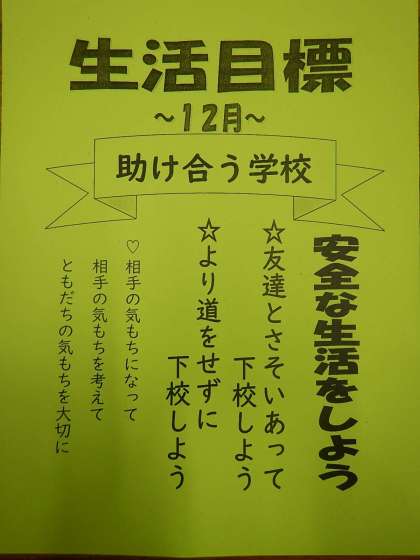 生活目標
～12月～
助け合う学校
安全な生活をしよう
☆友達とさそいあって
下校しよう
☆より道をせずに
下校しよう
♡相手の気もちになって
相手の気もちを考えて
ともだちの気もちを大切に